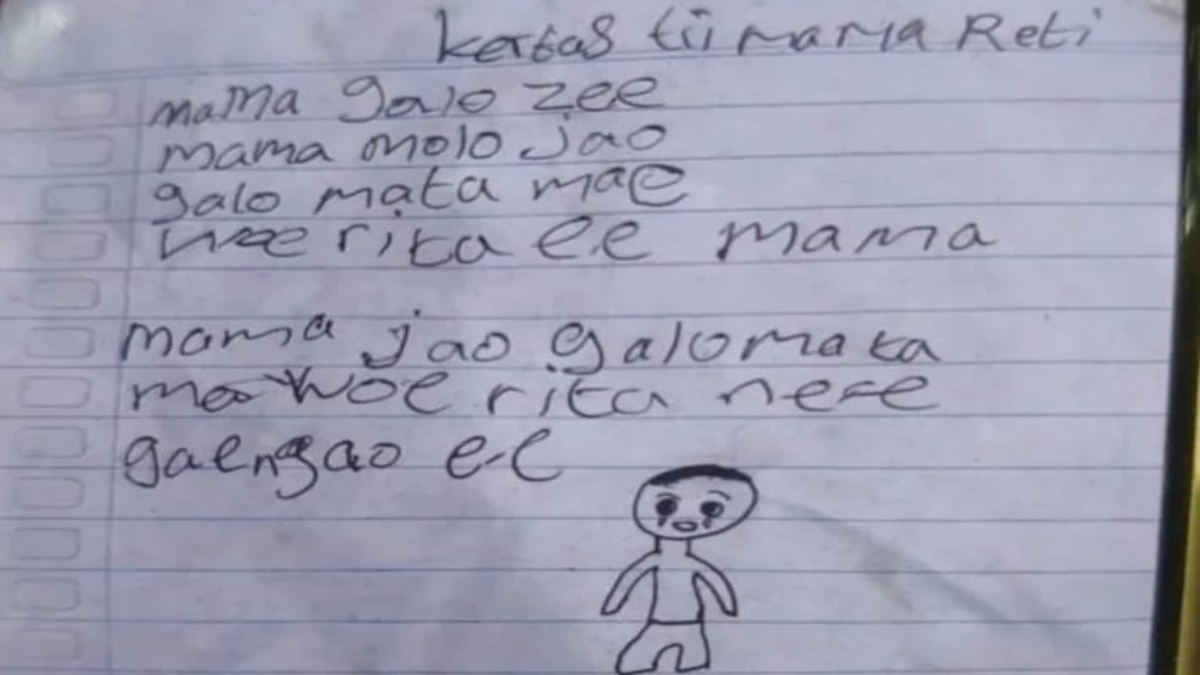 Kertas tii mama Reti
mama galo zee
mama molo jao
galo mata mae
woe rita ee mama
mama jao galo mata
mae woe rita ne e
gae ngao e e